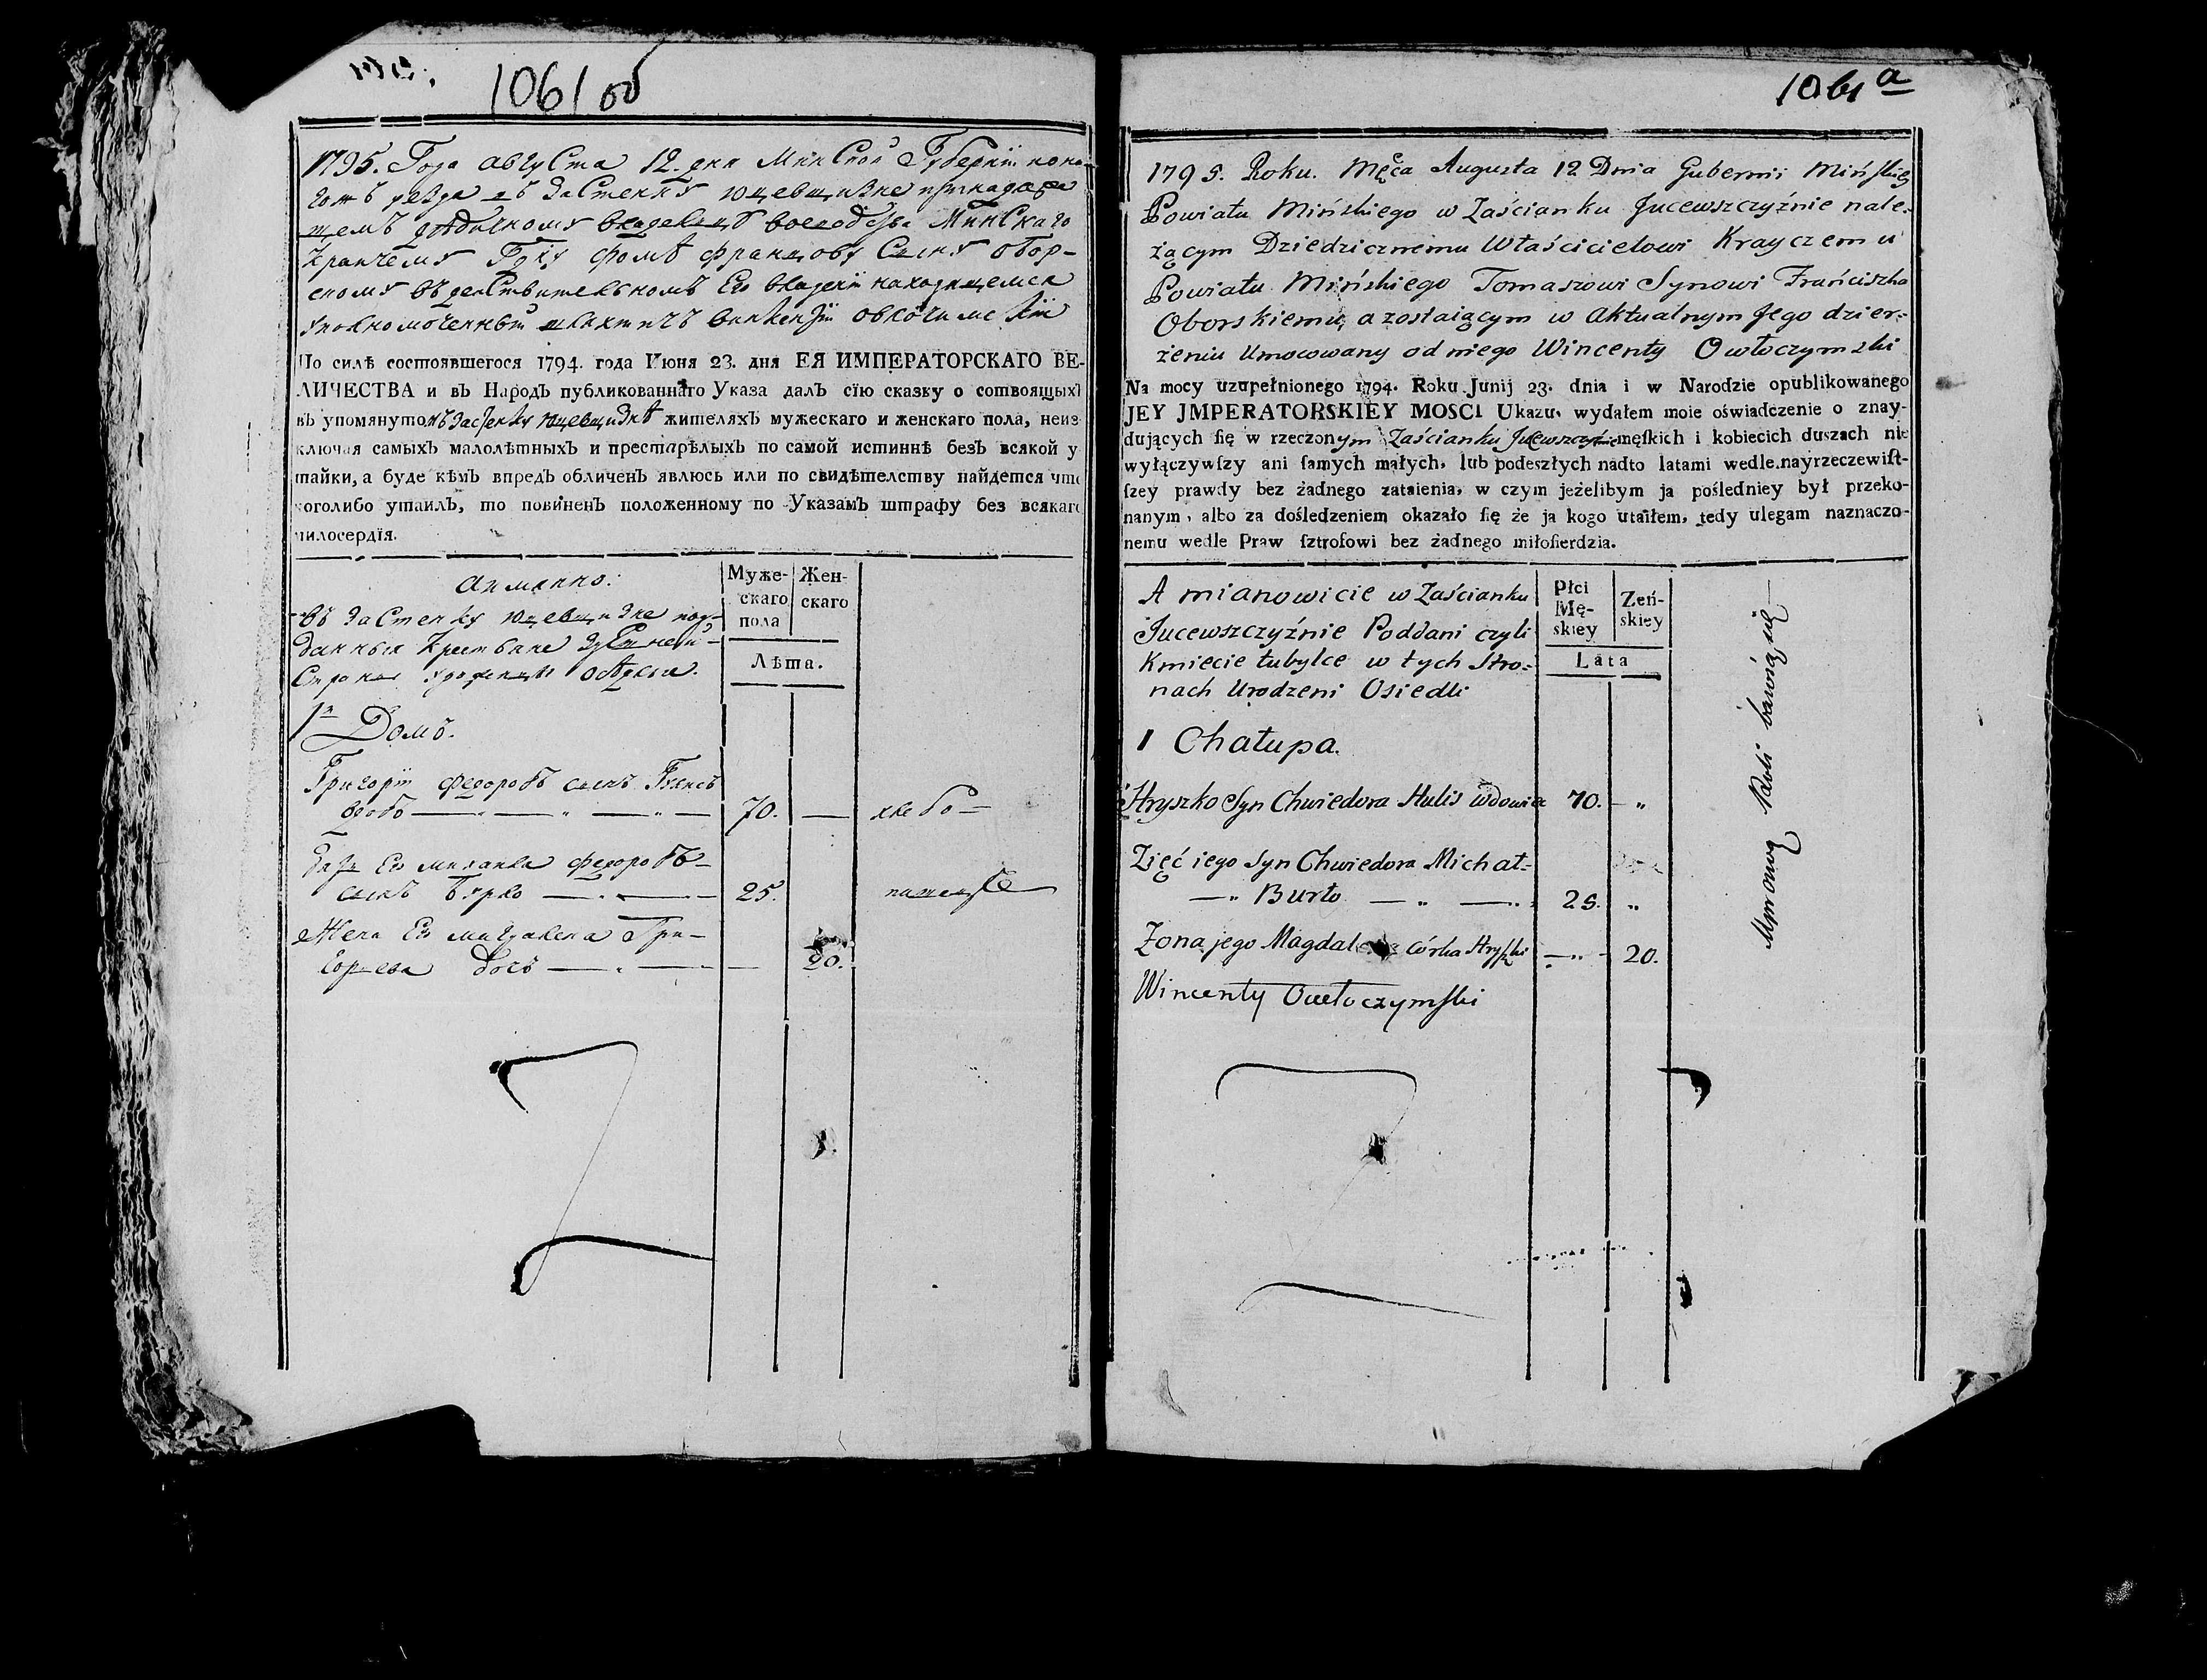 1061 об
1795. Года августа 12. дня Минской Губернїи
въ застенку Юцевщизне
воеводства Минскаго
Крайчему Гдну Фомѣ Францову сыну Обор-
скому въ действительномъ Его владенїи находящемся
уполномоченный шляхтичъ Викентїй
По силѣ состоявшегося 1794. года Июня 23. дня ЕЯ ИМПЕРАТОРСКАГО ВЕ-
ЛИЧЕСТВА и въ Народъ публикованнаго Указа далъ сїю сказку о сотвоящыхъ
въ упомянутомъ застенку Юцевщизнѣ жителяхъ мужескаго и женскаго пола, неиз
ключая самыхъ малолѣтныхъ и престарѣлыхъ по самой истиннѣ безъ всякой у
тайки, а буде кѣмъ впредъ обличенъ явлюсь или по свидѣтелству найдется что
коголибо утаилъ, то повиненъ положенному по Указамъ штрафу без всякаго
милосердїя.
а имянно:
въ застенку Юцевщизне под-
данныя крестьяне здешней
страны урожденцы оседлыя.
Муже-
скаго
пола
Жен-
скаго
Лѣта.
1й Домъ.
Григорїй Федоровъ сынъ
вдовъ 70. —
Зять Его Михайла Федоровъ
сынъ Бурло 25.
Жена Его Магдалена Гри-
горьева дочь — 20.
1061 a
1795. Roku. Męca Augusta 12 Dnia Gubernii Mińskiey
Powiatu Mińskiego w Zaścianku Jucewszczyźnie nale-
żącym Dziedzicznemu Właścicielowi Krayczemu
Powiatu Mińskiego Tomaszowi Synowi Franciszka
Oborskiemu, a zostaiącym w Aktualnym Jego dzier-
żeniu Umocowany od niego Wincenty Owłoczymski
Na mocy uzupełnionego 1794. Roku Junij 23. dnia i w Narodzie opublikowanego
JEY JMPERATORSKIEY MOSCI Ukazu, wydałem moie oświadczenie o znay-
dujących ſię w rzeczonym Zaścianku Jucewszczyźnie męſkich i kobiecich duszach nie
wyłączywſzy ani ſamych małych, lub podeszłych nadto latami wedle nayrzeczewiſt-
ſzey prawdy bez żadnego zataienia, w czym jeżelibym ja pośledniey był przeko-
nanym, albo za dośledzeniem okazało ſię że ja kogo utaiłem, tedy ulegam naznaczo-
nemu wedle Praw ſztrofowi bez żadnego miłoſierdzia.
A mianowicie w Zaścianku
Jucewszczyźnie Poddani czyli
Kmiecie tubylce w tych stro-
nach Urodzeni Osiedli
Płci
Mę-
skiey
Zeń-
skiey
Lata
1 Chałupa.
Hryszko Syn Chwiedora Hulis wdowiec 70. — "
Zięć iego Syn Chwiedora Michał-
— " Burło — " — 25. "
Zona jego Magdalena córka Hryszki — " 20.
Wincenty Owłoczymski
Uprawą Roli bawią się